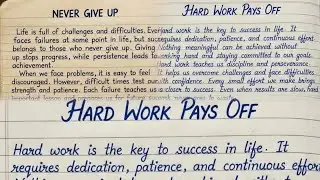 NEVER GIVE UP
Life is full of challenges and difficulties. Every
faces failures at some point in life, but suc
belongs to those who never give up. Giving
up stops progress, while persistence leads to
achievement.
When we face problems, it is easy to feel
discouraged. However, difficult times test our
strength and patience. Each failure teaches us
HARD WORK PAYS OFF
Hard work is the key to success in life. It
requires dedication, patience, and continuous effort
Nothing meaningful can be achieved without
working hard and staying committed to our goals.
Hard work teaches us discipline and perseverance.
It helps us overcome challenges and face difficulties
with confidence. Every small effort we make brings
us closer to success. Even when results are slow, hard
HARD WORK PAYS OFF
Hard work is the key to success in life. It
requires dedication, patience, and continuous effor